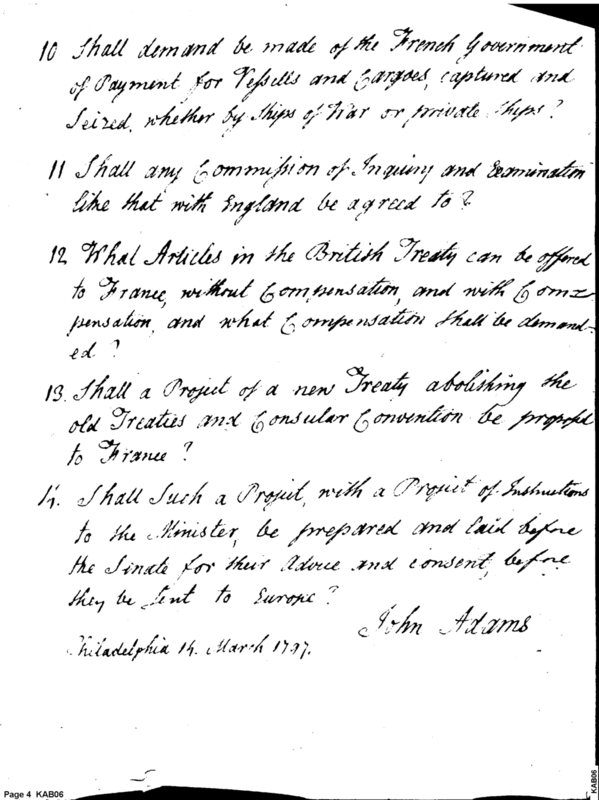 10 Shall demand be made of the French Government
of Payment for Vessells and Cargoes, captured and
Seized, whether by Ships of War or private Ships?
11 Shall any Commission of Inquiry and Examination
like that with England be agreed to?
12 What Articles in the British Treaty can be offered
to France, without Compensation, and with Com=
pensation, and what Compensation Shall be demand-
ed?
13. Shall a Project of a new Treaty abolishing the
old Treaties and Consular Convention be proposed
to France?
14. Shall Such a Project, with a Project of Instructions
to the Minister, be prepared and laid before
the Senate for their Advice and consent, before
they be Sent to Europe?
John Adams
Philadelphia 14. March 1797.
Page 4 KAB06
KAB06